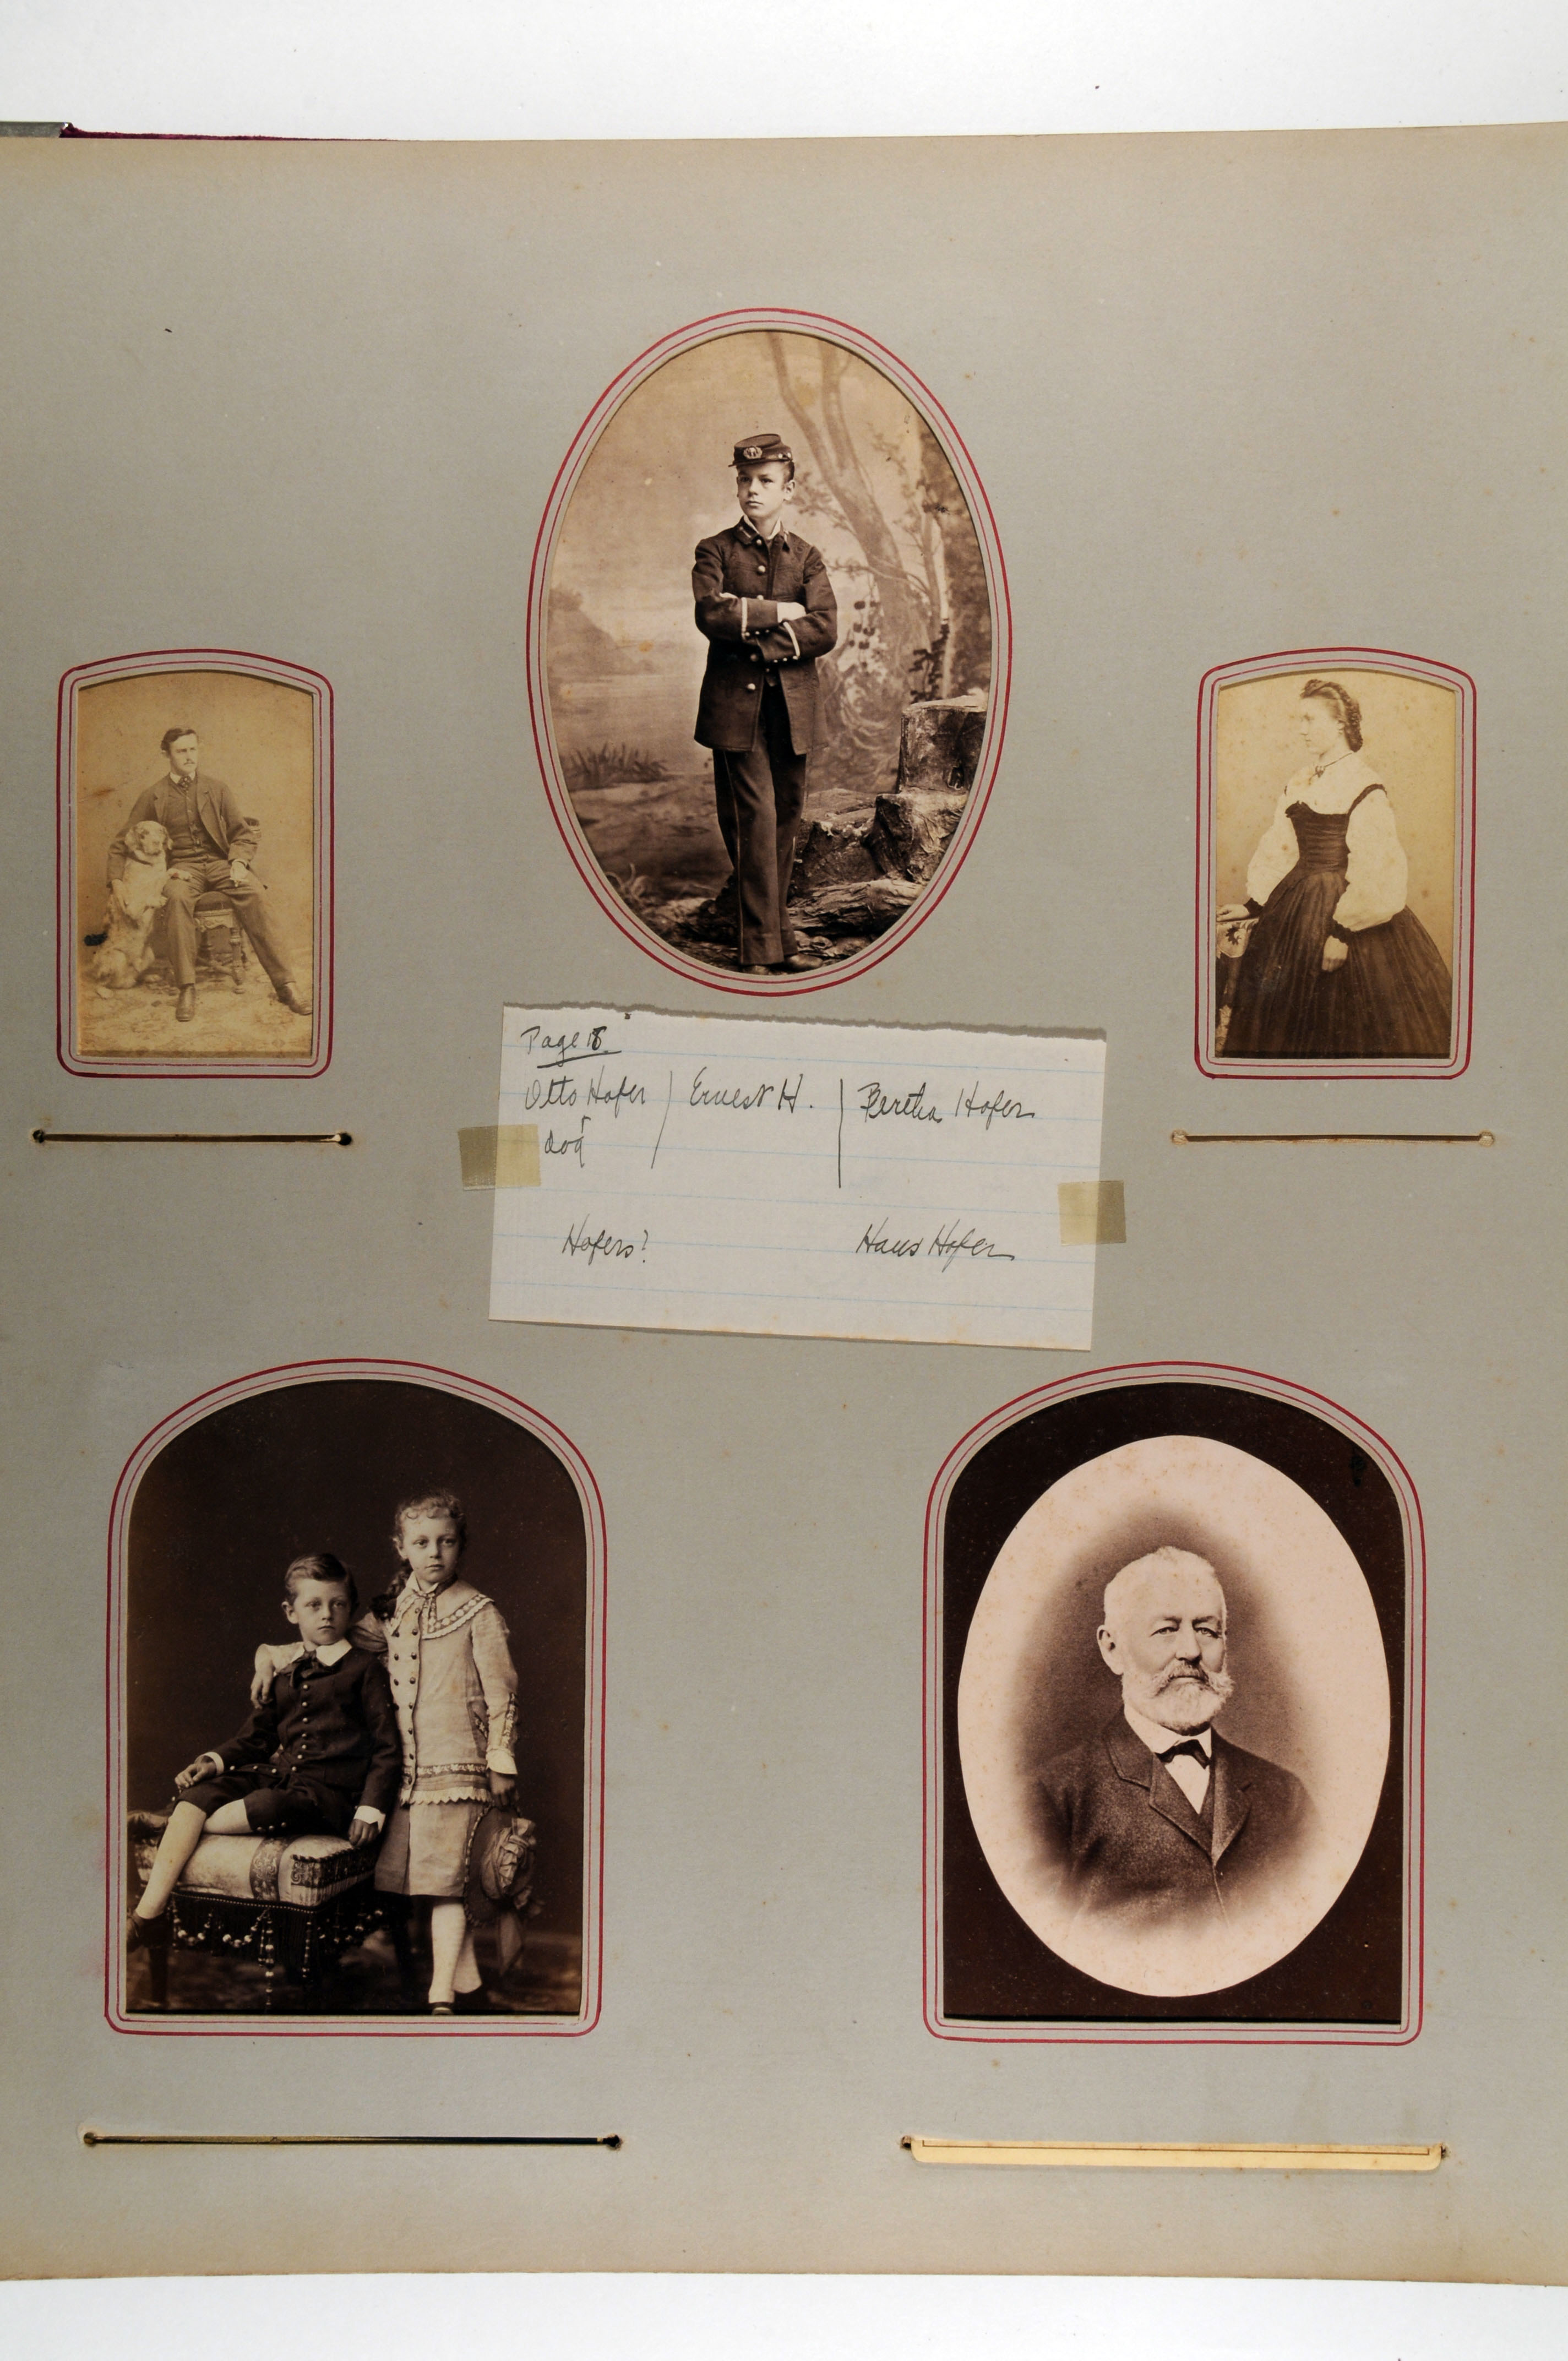 Page 18.
Otto Hofer / Ernest H. | Bertha Hofer
dog
Hofers? Hans Hofer